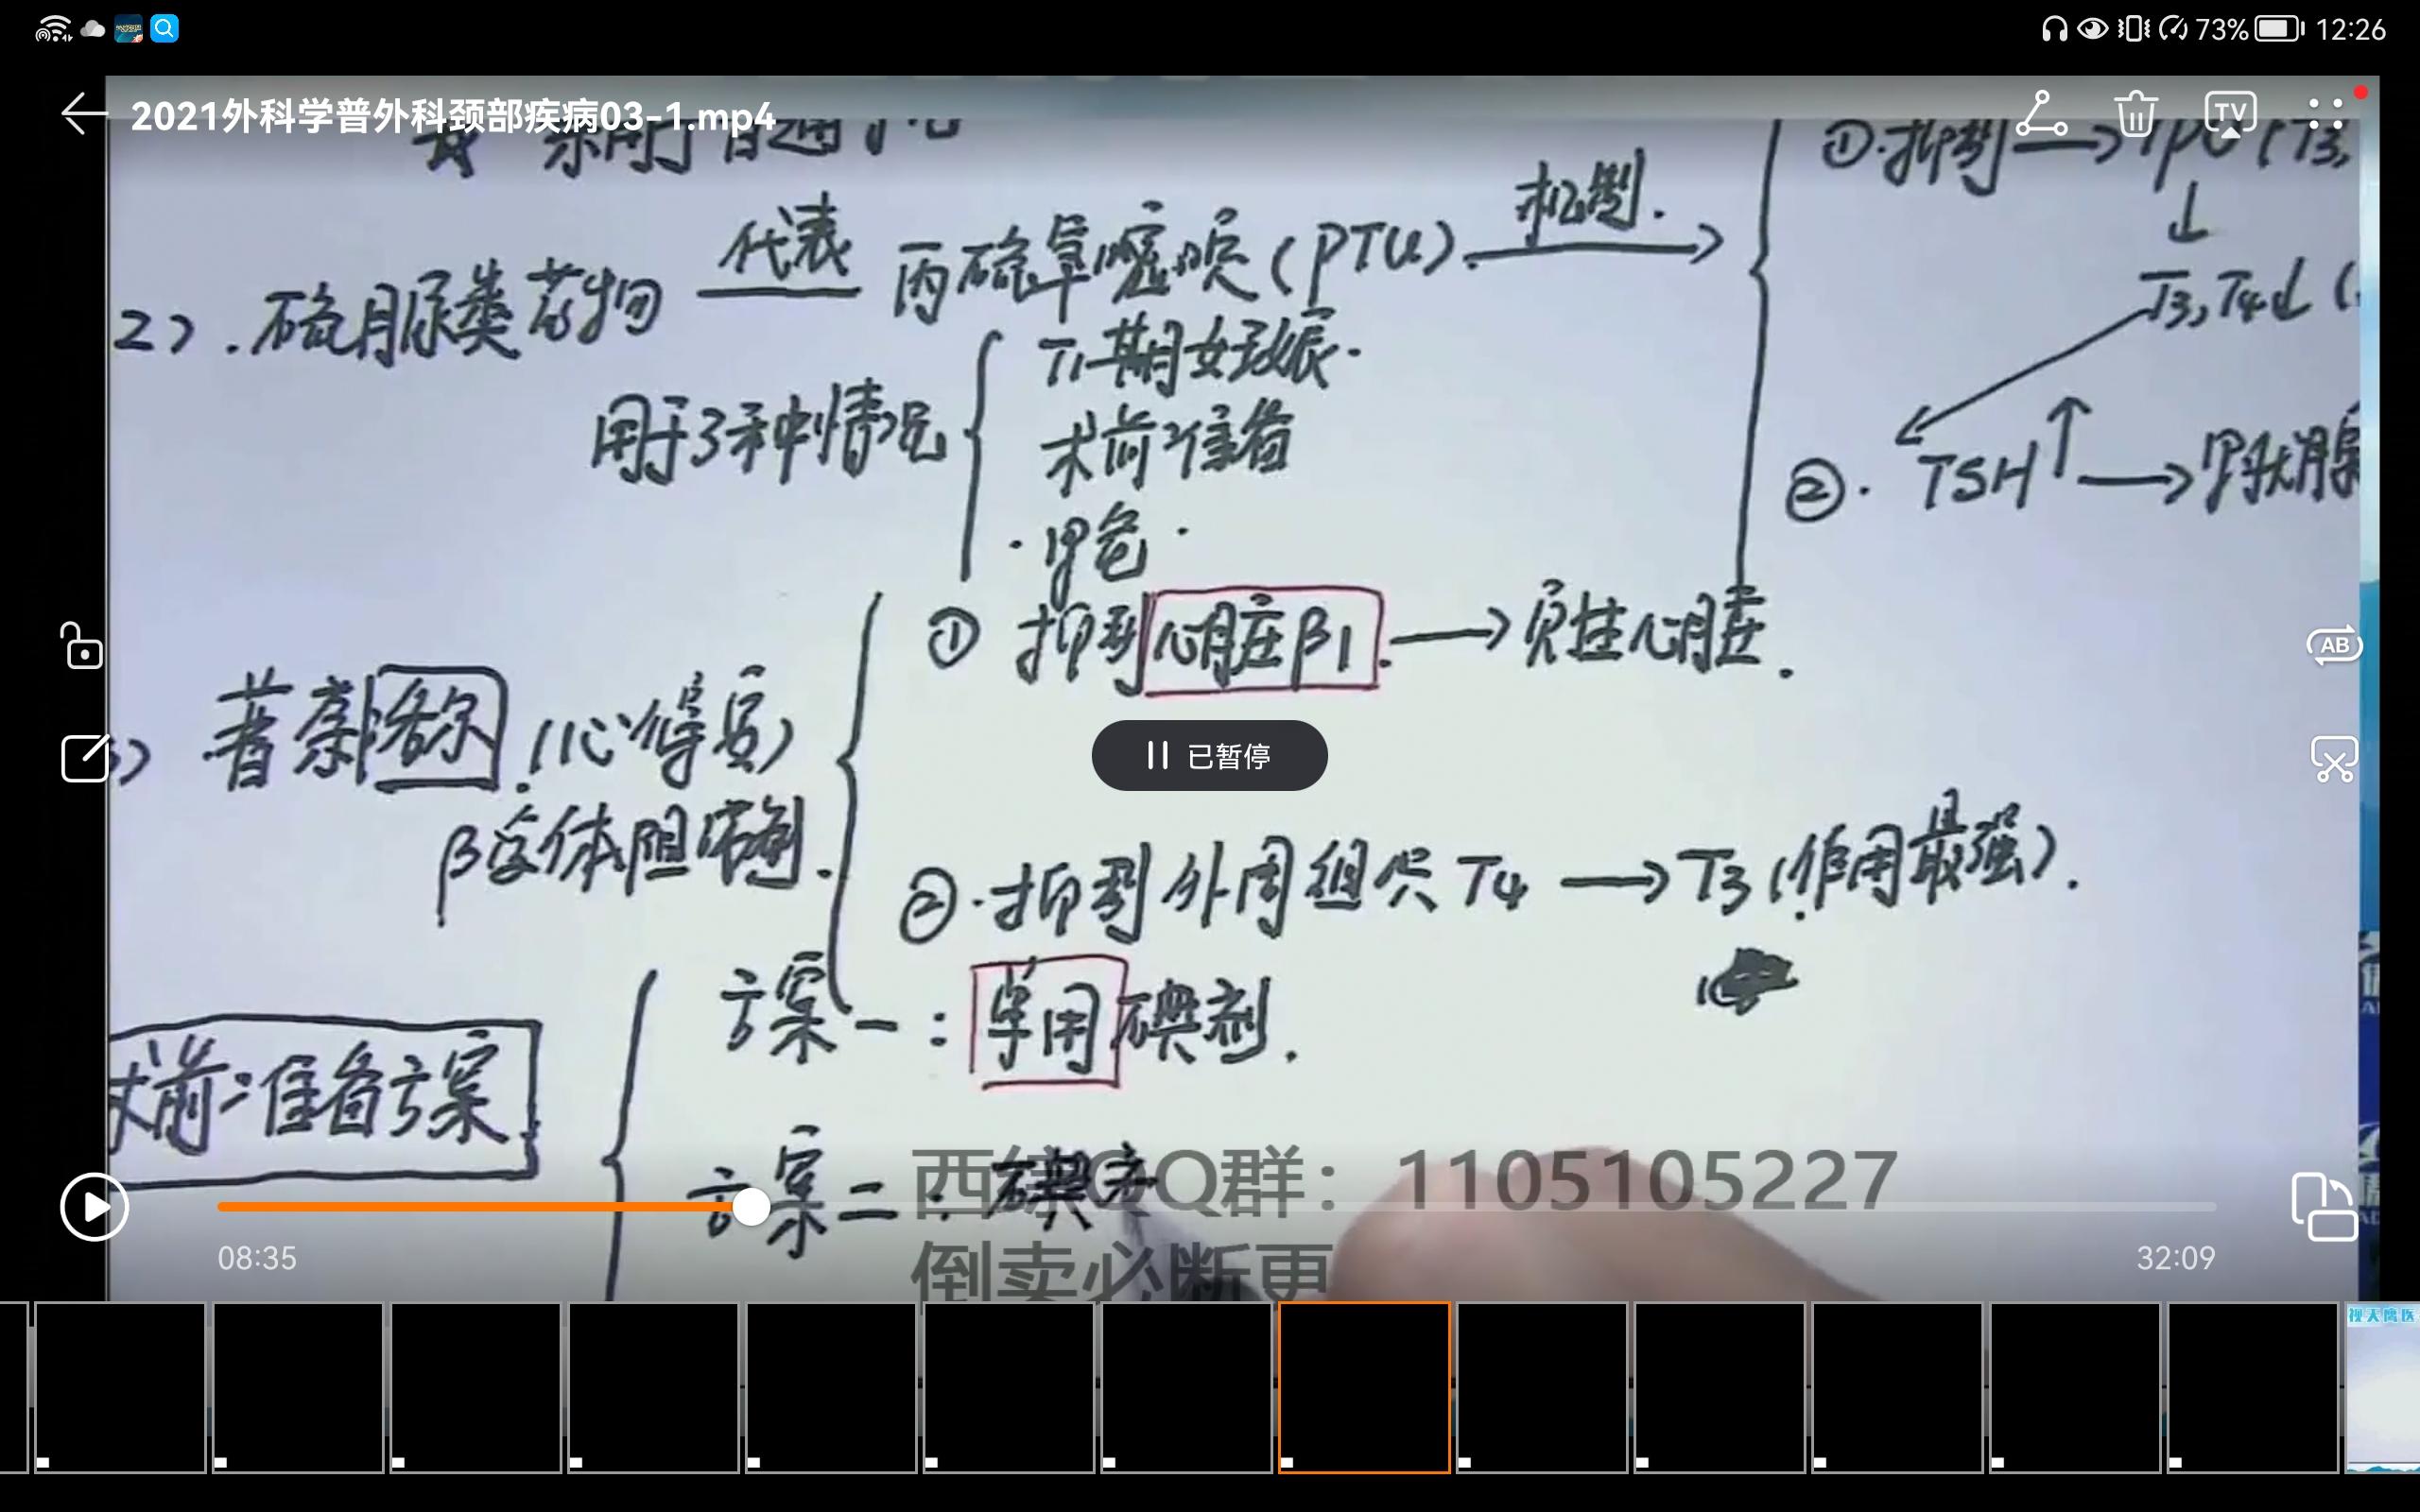 73% 12:26
2021外科学普外科颈部疾病03-1.mp4
TV
2). 硫脲类药物 代表 丙硫氧嘧啶(PTU). 机制.
①.抑制
T3, T4↓ (
用于3种情况
T1期妊娠.
术前准备
·甲危·
②. TSH↑ → 甲状腺
① 抑制心脏β1. → 负性心脏.
普萘洛尔.(心得安)
β受体阻滞剂.
AB
已暂停
②.抑制外周组织T4 → T3(作用最强).
术前准备方案
方案一: 单用碘剂.
方案二: 碘
西综QQ群：1105105227
倒卖必断更
08:35
32:09